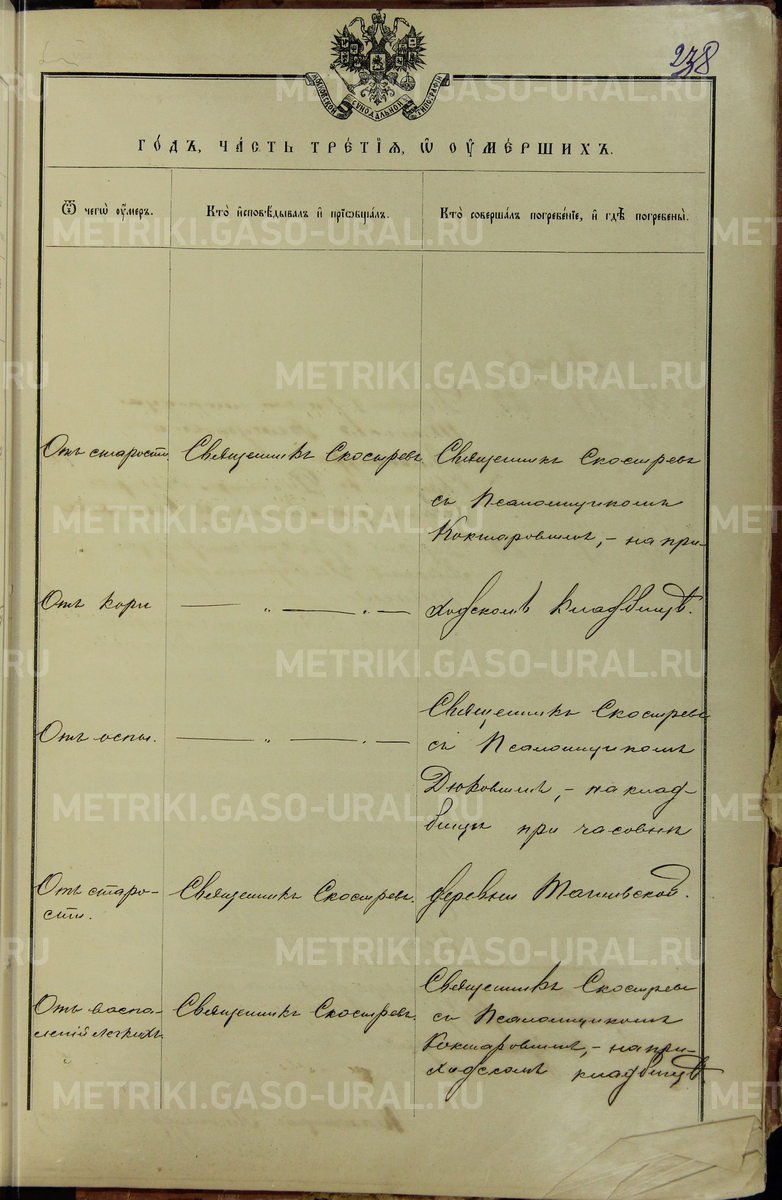 238
МОСКОВСКОЙ СѴНОДАЛЬНОЙ ТИПОГРАФІИ
ГО́ДЪ, ЧА́СТЬ ТРЕ́ТІѦ, Ѡ ОУ҆МЕ́РШИХЪ.
Ѿ чегѡ̀ оу҆́меръ.
Кто̀ и҆сповѣ́дывалъ и҆ прїѡбща́лъ.
Кто̀ соверша́лъ погребе́нїе, и҆ гдѣ̀ погребены̀.
Отъ старости
Священникъ Скосыревъ
Священникъ Скосыревъ
съ Псаломщикомъ
Кокшаровымъ, - на при-
Отъ кори
— „ — „ —
ходскомъ кладбищѣ.
Священникъ Скосыревъ
Отъ оспы.
— „ — „ —
съ Псаломщикомъ
на клад-
бищѣ при часовнѣ
Отъ старо-
сти.
Священникъ Скосыревъ.
деревни
Отъ воспа-
леній легкихъ
Священникъ Скосыревъ.
Священникъ Скосыревъ
съ Псаломщикомъ
Кокшаровымъ, - на при-
ходскомъ кладбищѣ.
METRIKI.GASO-URAL.RU